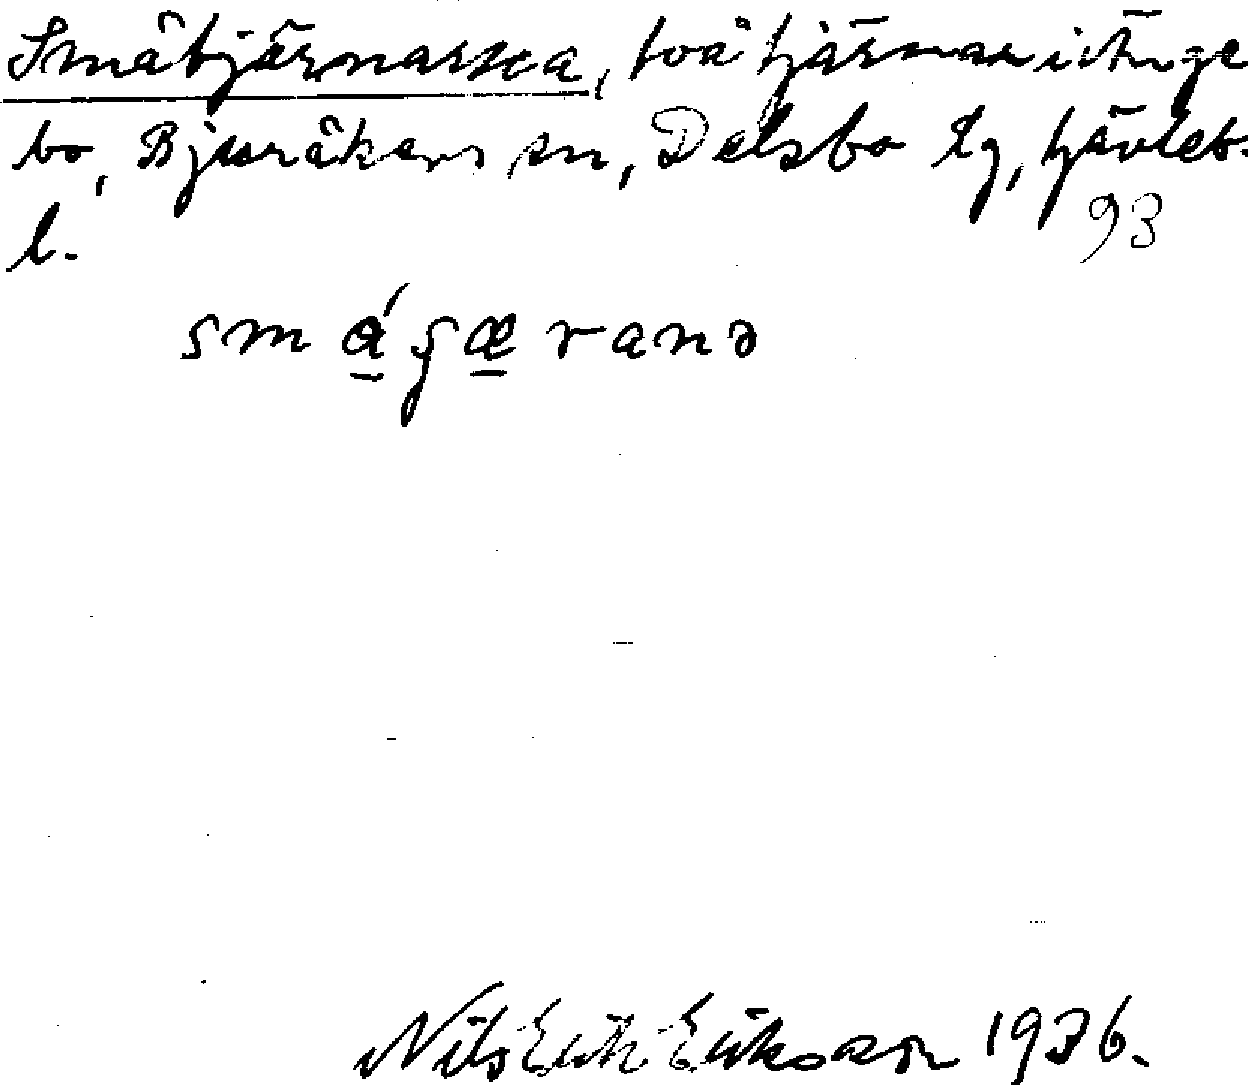 Småtjärnarna, två tjärnar i Änge
bo, Bjuråkers sn, Delsbo tg, Gävleb.
l.
93
smáʃæranə
Nils Erik Eriksson 1936.